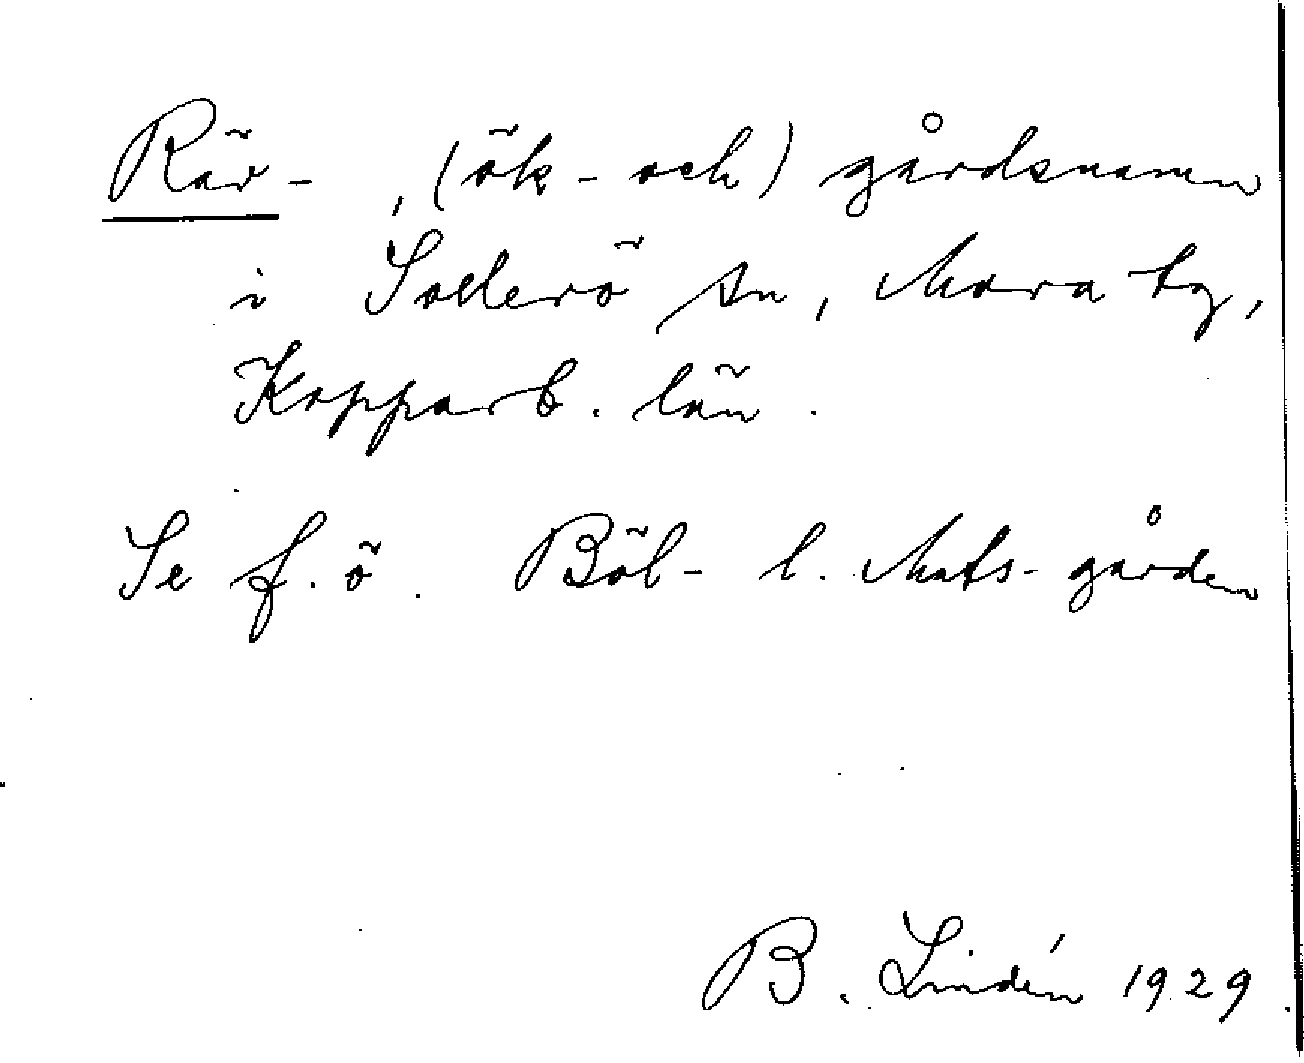 Räv- , (ök- och) gårdsnamn
i Sollerö sn, Mora tg,
Kopparb. län.
Se f. ö. Böl- l. Mats-gården
B. Lindén 1929